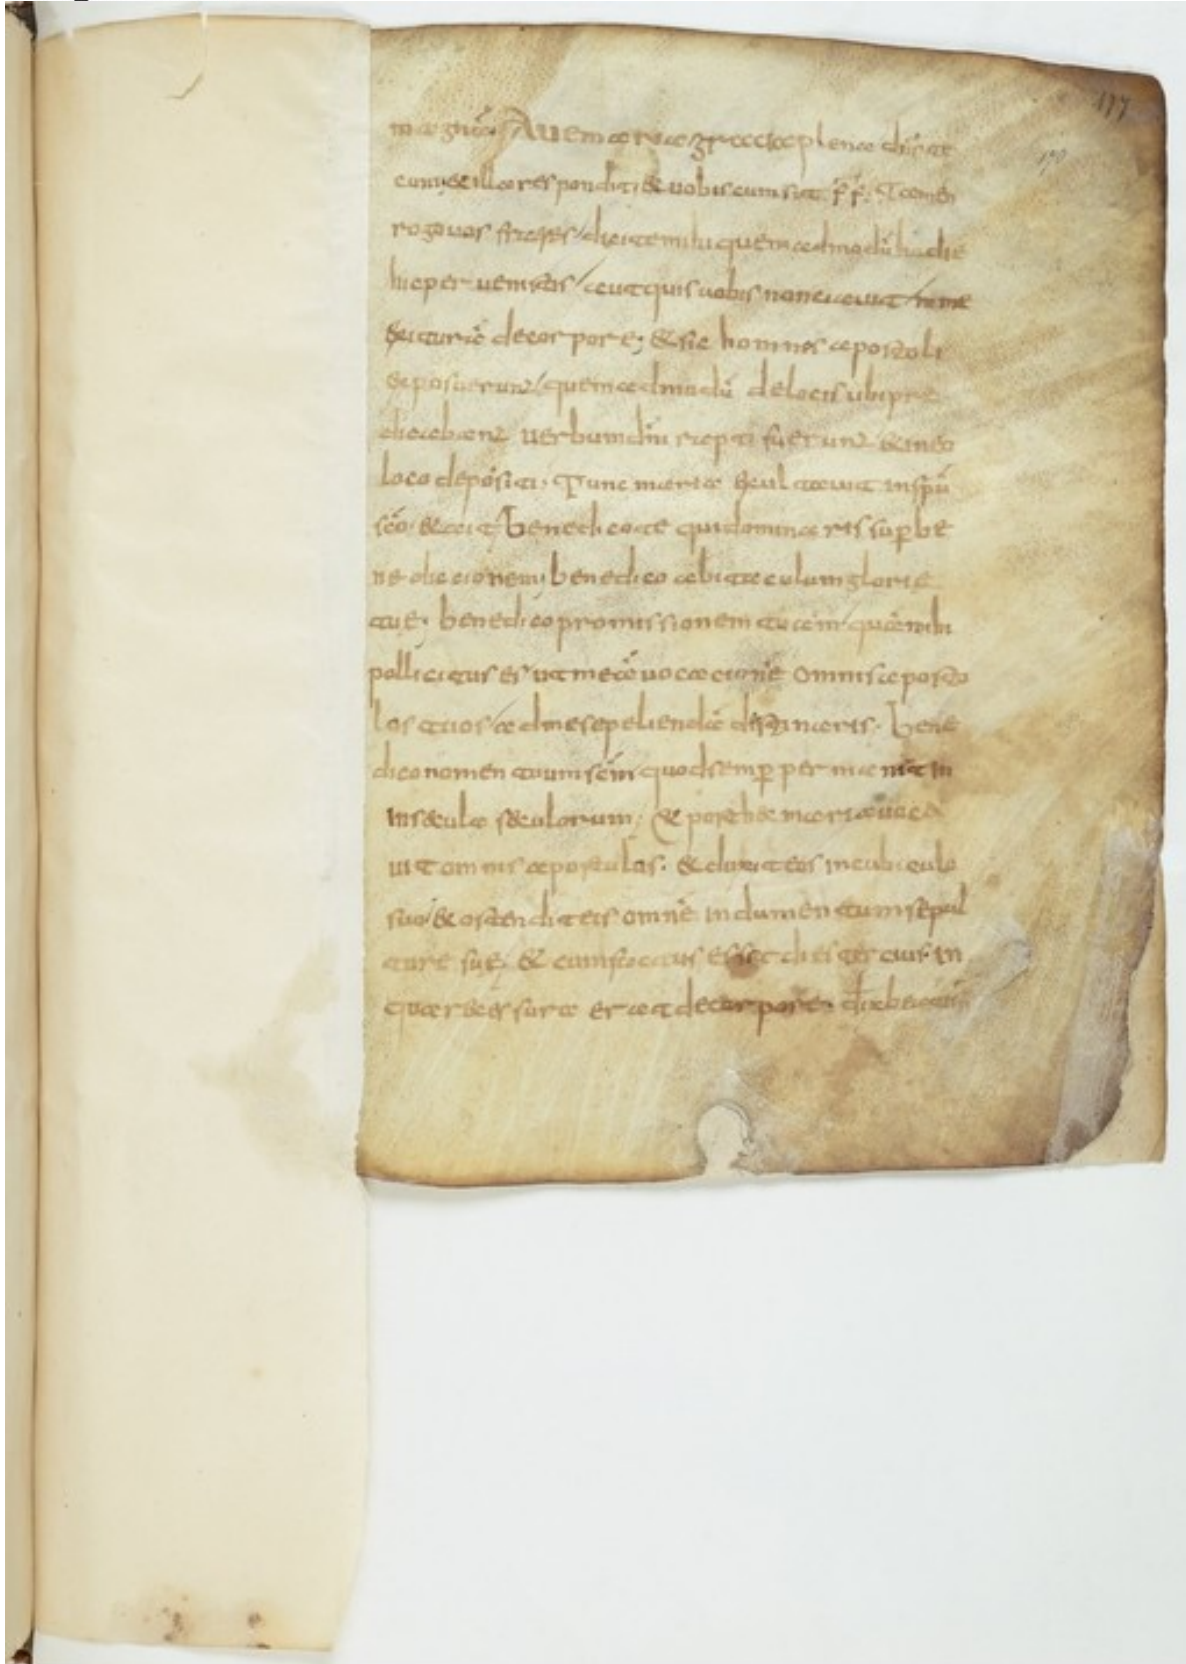 177
170
magna. Ave maria gratia plena dn̄s te
cum; & illa respondit; & vobiscum sit f̄f̄. Tamen
rogo vos fratres / dicite mihi quemadmodū hodie
hic pervenistis / aut quis vobis nonciavit / me me
exituram de corpore; & sic homnis apostoli
exposuerunt / quemadmodū de locis ubi pre
dicabant verbum dn̄i rapti fuerunt & in eo
loco depositi. Tunc maria exultavit in sp̄u
sc̄o. & ait / Benedico te qui dominaris sup̱ be
nedictionem; benedico abitaculum glorie
tue; benedico promissionem tuam / quā mihi
pollicitus es ut me ā vocacione omnis aposto
los tuos / ad me sepeliendā distinaris. Bene
dico nomen tuum sc̄m quod semp̱ permanit in
in sæcula sæculorum; & post hæc maria voca
vit omnis apostulas. & duxit eos in cubiculo
suo / & ostendit eis omnē indumentum sepul
ture suę; & cum factus esset dies tercius in
quar egressura erat de corpore;